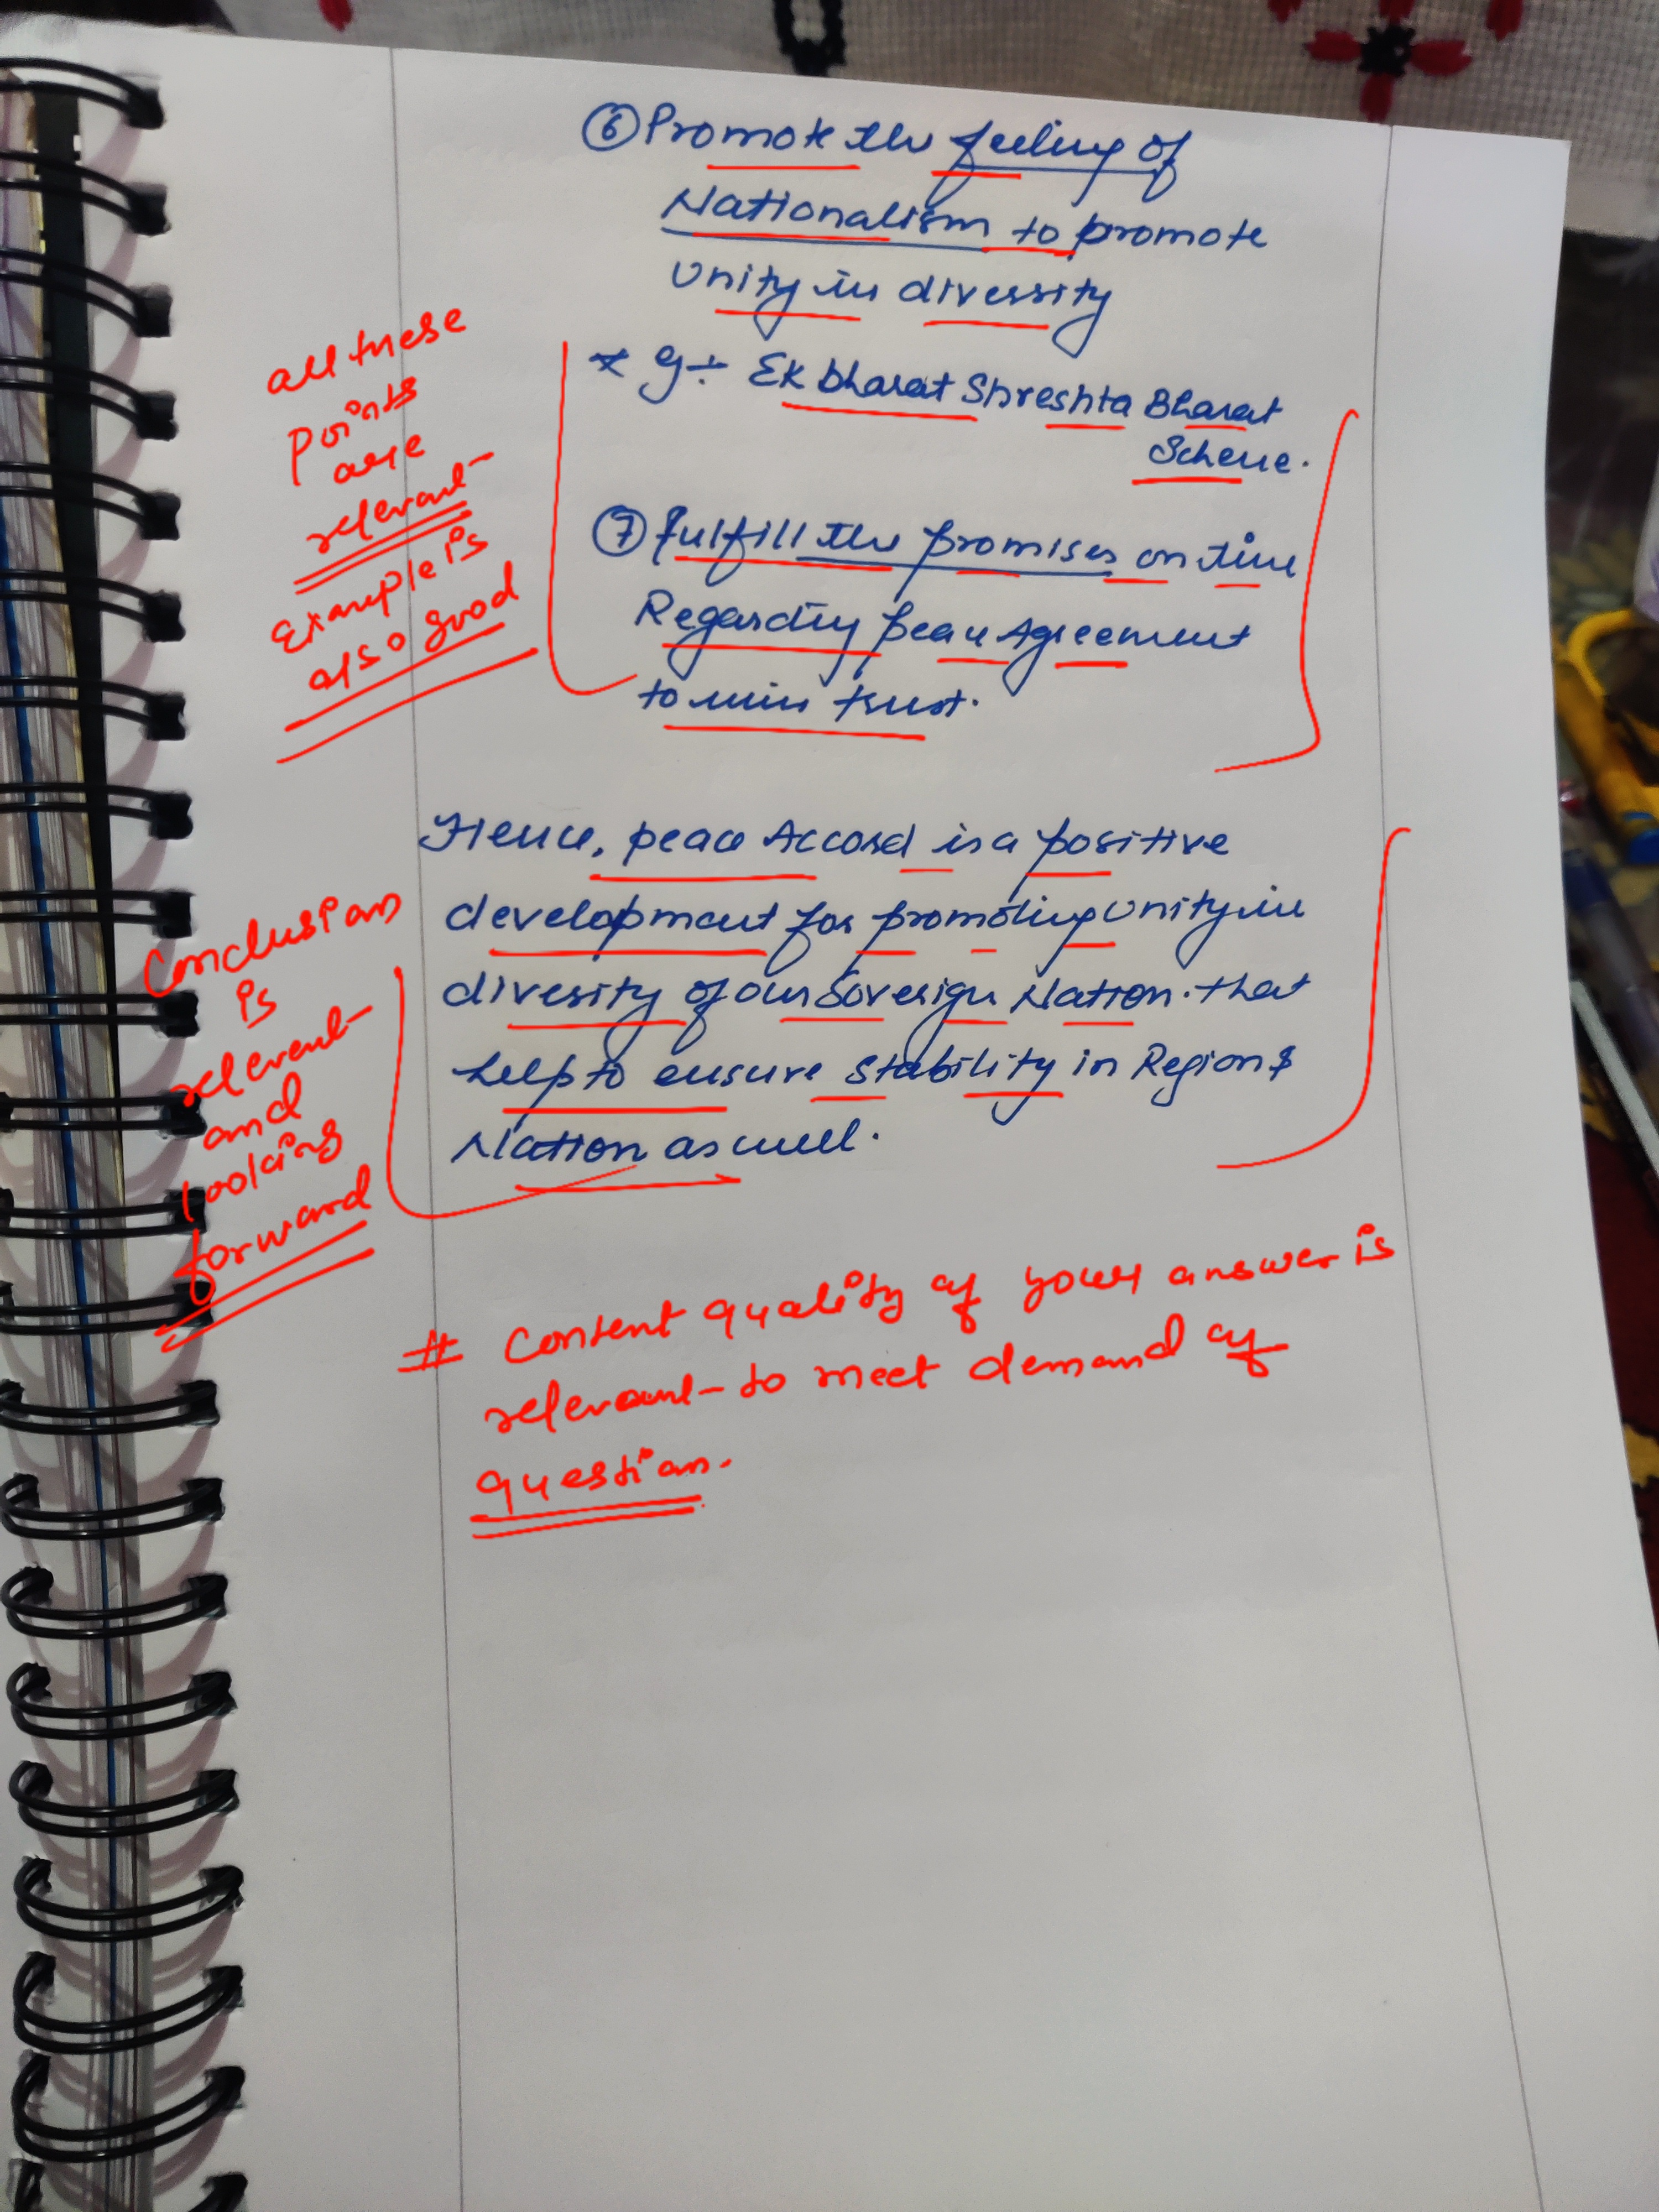 ⑥ Promote the feeling of
Nationalism to promote
Unity in diversity
eg:- Ek bharat Shreshta Bharat
Scheme.
all these
points
are
relevant
Example is
also good
⑦ fulfill the promises on time
Regarding peace Agreement
to win trust.
Hence, peace Accord is a positive
development for promoting unity in
divesity of our Sovereign Nation. that
help to ensure stability in Region &
Nation as well.
Conclusion
is
relevent
and
looking
forward
# Content quality of your answer is
relevant to meet demand of
question.